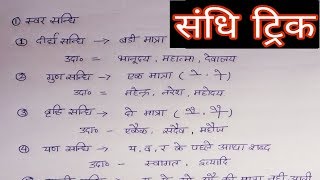 संधि ट्रिक
① स्वर सन्धि
① दीर्घ सन्धि → बडी मात्रा
उदा० = भानूदय, महात्मा, देवालय
② गुण सन्धि → एक मात्रा ( े , ो )
उदा० - महेन्द्र, नरेश, महोदय
③ वृद्धि सन्धि → दो मात्रा ( ै , ौ )
उदा० - एकैक, सदैव, महौज
④ यण सन्धि → य, व, र के पहले आधा शब्द
उदा० - स्वागत, इत्यादि